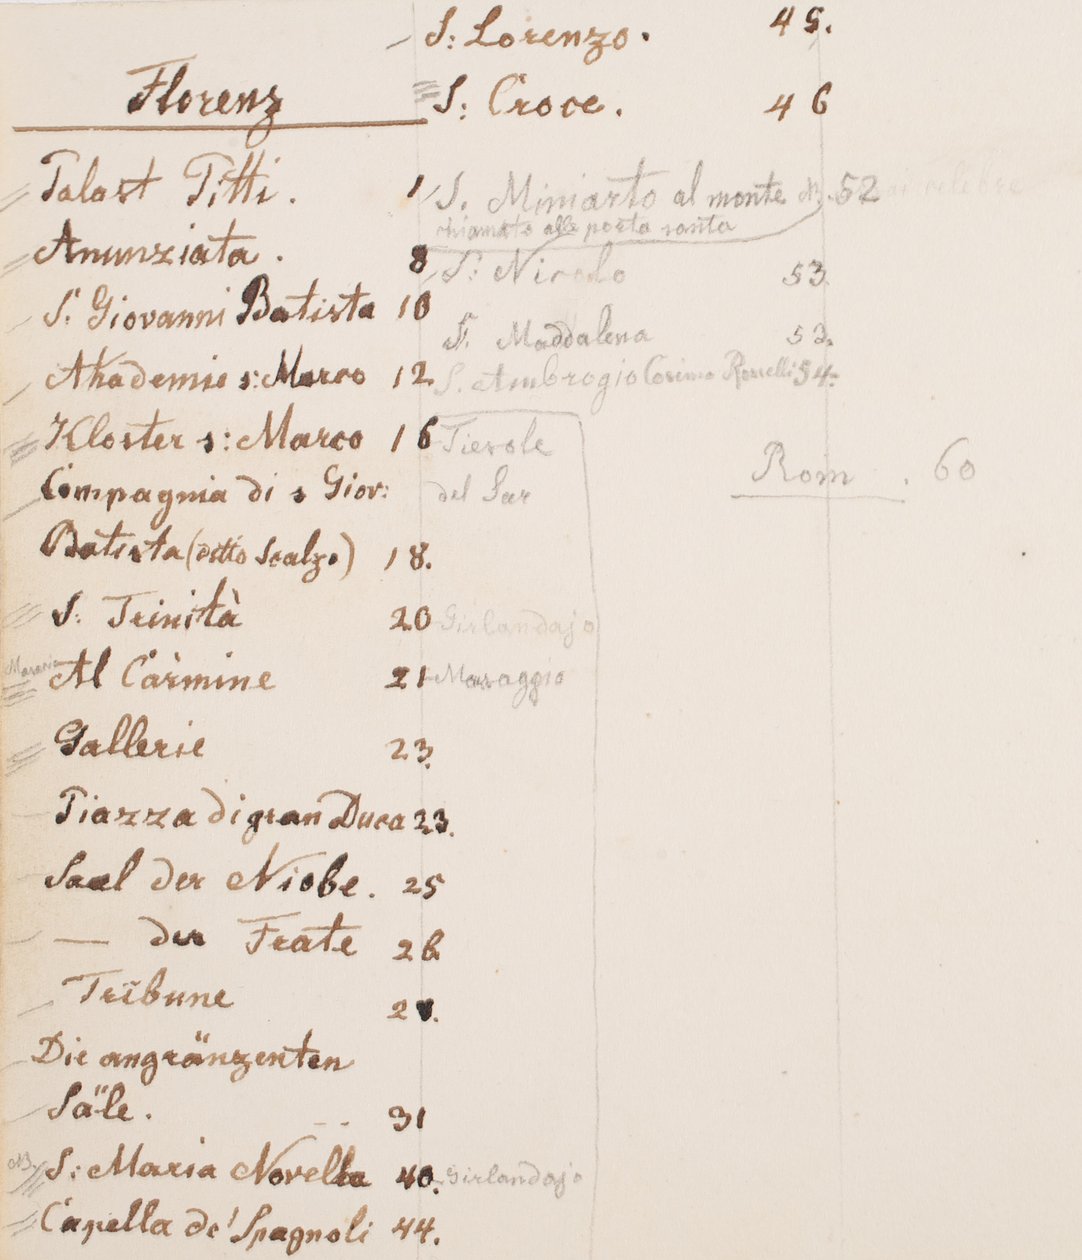 Florenz
Palast Pitti. 1
Anunziata. 8
S: Giovanni Batista 10
Akademie s: Marco 12
Kloster s: Marco 16
Compagnia di s Giov:
Batista (ditto Scalzo) 18.
S: Trinità 20 Girlandajo
Al Carmine 21 Masaggio
Gallerie 23.
Piazza di gran Duca 23.
Saal der Niobe. 25
— der Frate 26
Tribune
Die angränzenten
Säle. 31
NB. S: Maria Novella 40. Girlandajo
Capella de' Spagnoli 44.
S: Lorenzo. 45.
S: Croce. 46
S. Miniarto al monte 52
chiamato alle porta santa
S: Nicolo 53.
S. Maddalena 53.
S. Ambrogio Cosimo Rosselli 54.
Fiesole
del Sar
Rom. 60